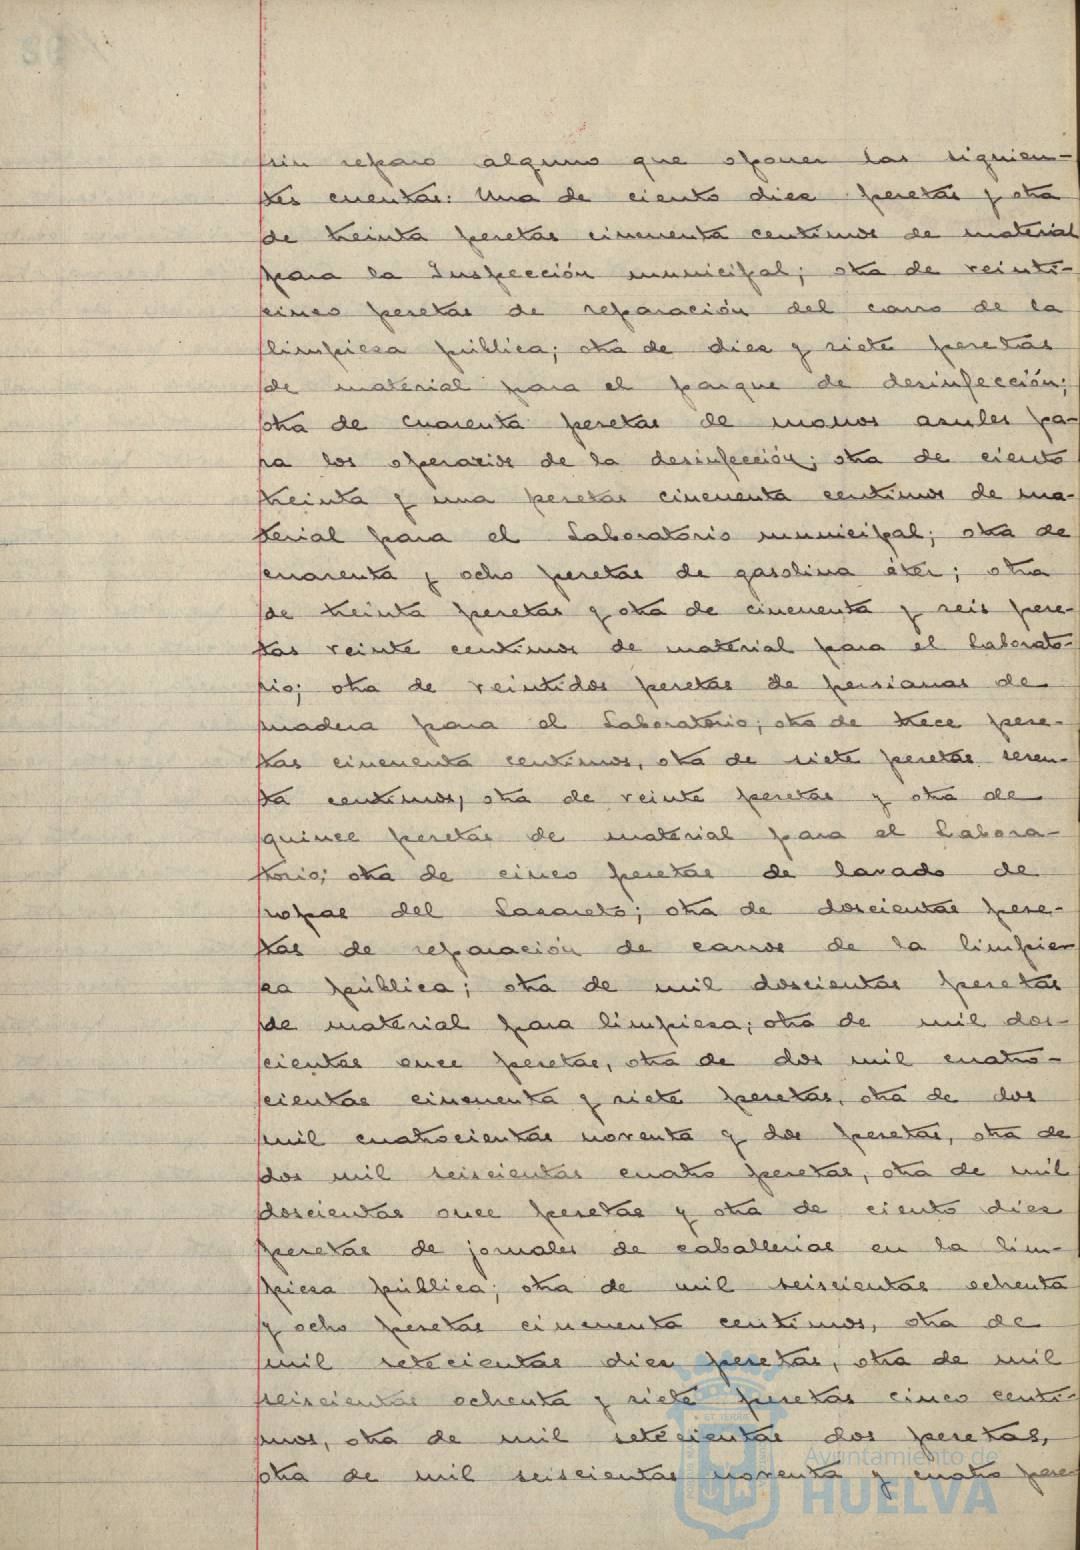 sin reparo alguno que oponer las siguien-
tes cuentas: Una de ciento diez pesetas y otra
de treinta pesetas cincuenta centimos de material
para la Inspección municipal; otra de veinti-
cinco pesetas de reparación del carro de la
limpieza pública; otra de diez y siete pesetas
de material para el parque de desinfección;
otra de cuarenta pesetas de monos azules pa-
ra los operarios de la desinfección; otra de ciento
treinta y una pesetas cincuenta centimos de ma-
terial para el Laboratorio municipal; otra de
cuarenta y ocho pesetas de gasolina éter; otra
de treinta pesetas y otra de cincuenta y seis pese-
tas veinte centimos de material para el Laborato-
rio; otra de veintidos pesetas de persianas de
madera para el Laboratorio; otra de trece pese-
tas cincuenta centimos, otra de siete pesetas sesen-
ta centimos, otra de veinte pesetas y otra de
quince pesetas de material para el Labora-
torio; otra de cinco pesetas de lavado de
ropas del Lazareto; otra de doscientas pese-
tas de reparación de carros de la limpie-
za pública; otra de mil doscientas pesetas
de material para limpieza; otra de mil dos-
cientas once pesetas, otra de dos mil cuatro-
cientas cincuenta y siete pesetas, otra de dos
mil cuatrocientas noventa y dos pesetas, otra de
dos mil seiscientas cuatro pesetas, otra de mil
doscientas once pesetas y otra de ciento diez
pesetas de jornales de caballerias en la lim-
pieza pública; otra de mil seiscientas ochenta
y ocho pesetas cincuenta centimos, otra de
mil setecientas diez pesetas, otra de mil
seiscientas ochenta y siete pesetas cinco centi-
mos, otra de mil setecientas dos pesetas,
otra de mil seiscientas noventa y cuatro pese-
Ayuntamiento de
HUELVA